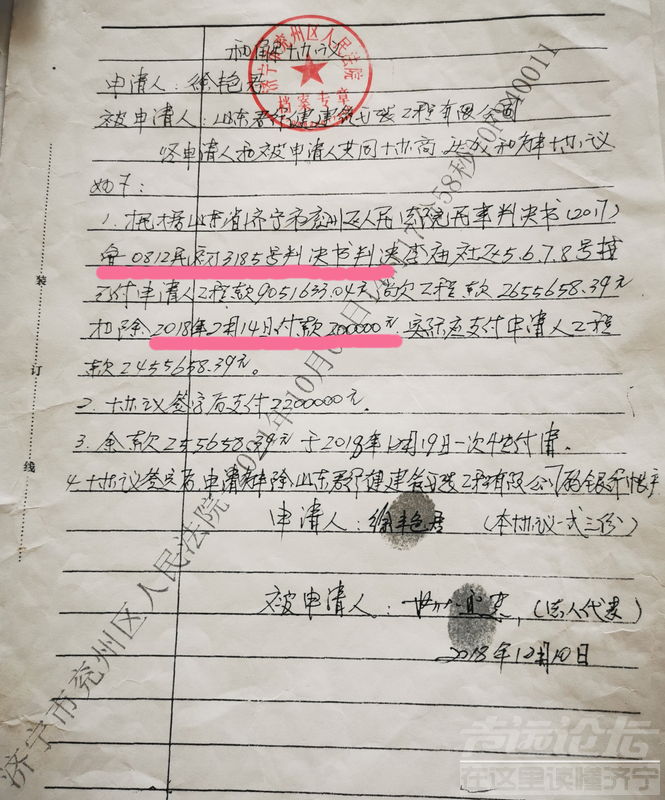 和解协议
申请人：徐艳君
被申请人：山东君健建筑安装工程有限公司
经申请人和被申请人共同协商达成和解协议
如下：
1.根据山东省济宁市兖州区人民法院民事判决书(2017)
鲁0812民初3185号判决书判决李庙社区5.6.7.8号楼
支付申请人工程款9051633.04元尚欠工程款2655658.39元
扣除2018年2月14日付款200000元.实际应支付申请人工程
款2455658.39元。
2.协议签字后支付2200000元.
3.余款255658.39元于2018年12月19日一次性付清.
4.协议签字后申请解除山东君健建筑安装工程有限公司的银行帐户
申请人：徐艳君 (本协议一式三份)
被申请人： (法人代表)
2018年12月10日
济宁市兖州区人民法院
档案专章
装
订
线
济宁市兖州区人民法院
58秒
在这里读懂济宁